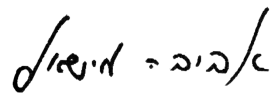 אביבה מישאל